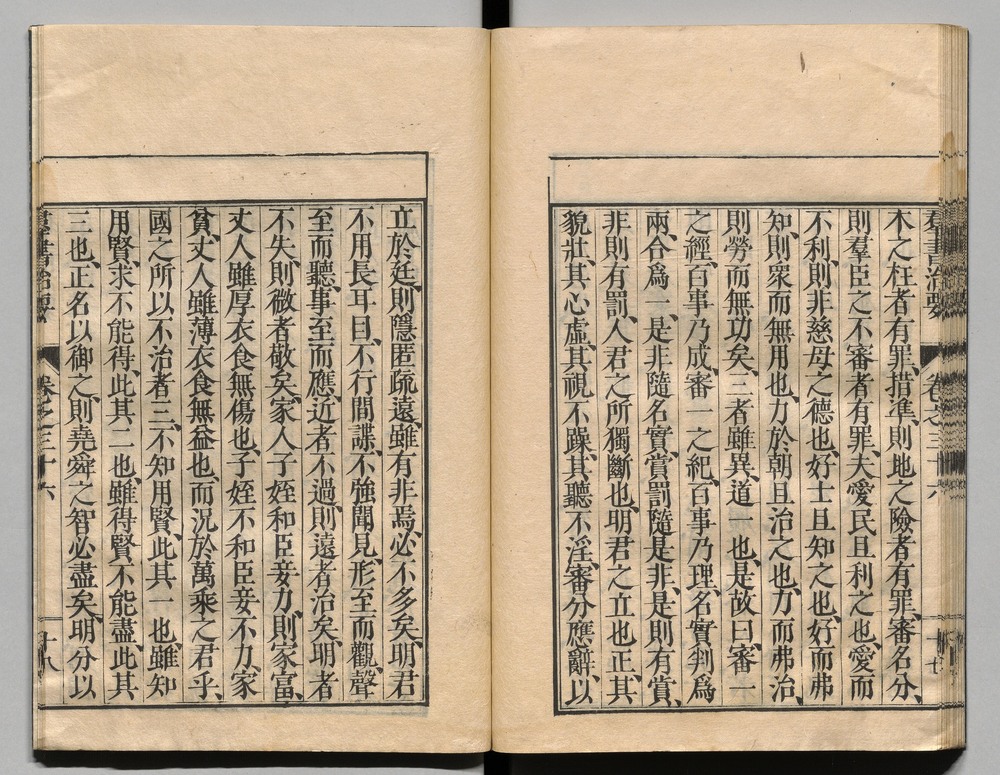 羣書治要 卷之三十六 十七
木之枉者有罪、措準、則地之險者有罪、審名分、
則羣臣之不審者有罪、夫愛民且利之也、愛而
不利、則非慈母之德也、好士且知之也、好而弗
知、則衆而無用也、力於朝且治之也、力而弗治、
則勞而無功矣、三者雖異、道一也、是故曰、審一
之經、百事乃成、審一之紀、百事乃理、名實判爲
兩、合爲一、是非隨名實、賞罰隨是非、是則有賞、
非則有罰、人君之所獨斷也、明君之立也正、其
貌壯、其心虛、其視不躁、其聽不淫、審分應辭、以
立於廷、則隱匿疏遠、雖有非焉、必不多矣、明君
不用長耳目、不行間諜、不強聞見、形至而觀、聲
至而聽、事至而應、近者不過、則遠者治矣、明者
不失、則微者敬矣、家人子姪和、臣妾力、則家富、
丈人雖厚衣食無傷也、子姪不和、臣妾不力、家
貧、丈人雖薄衣食無益也、而況於萬乘之君乎、
國之所以不治者三、不知用賢、此其一也、雖知
用賢、求不能得、此其二也、雖得賢、不能盡、此其
三也、正名以御之、則堯舜之智必盡矣、明分以
羣書治要 卷之三十六 十八